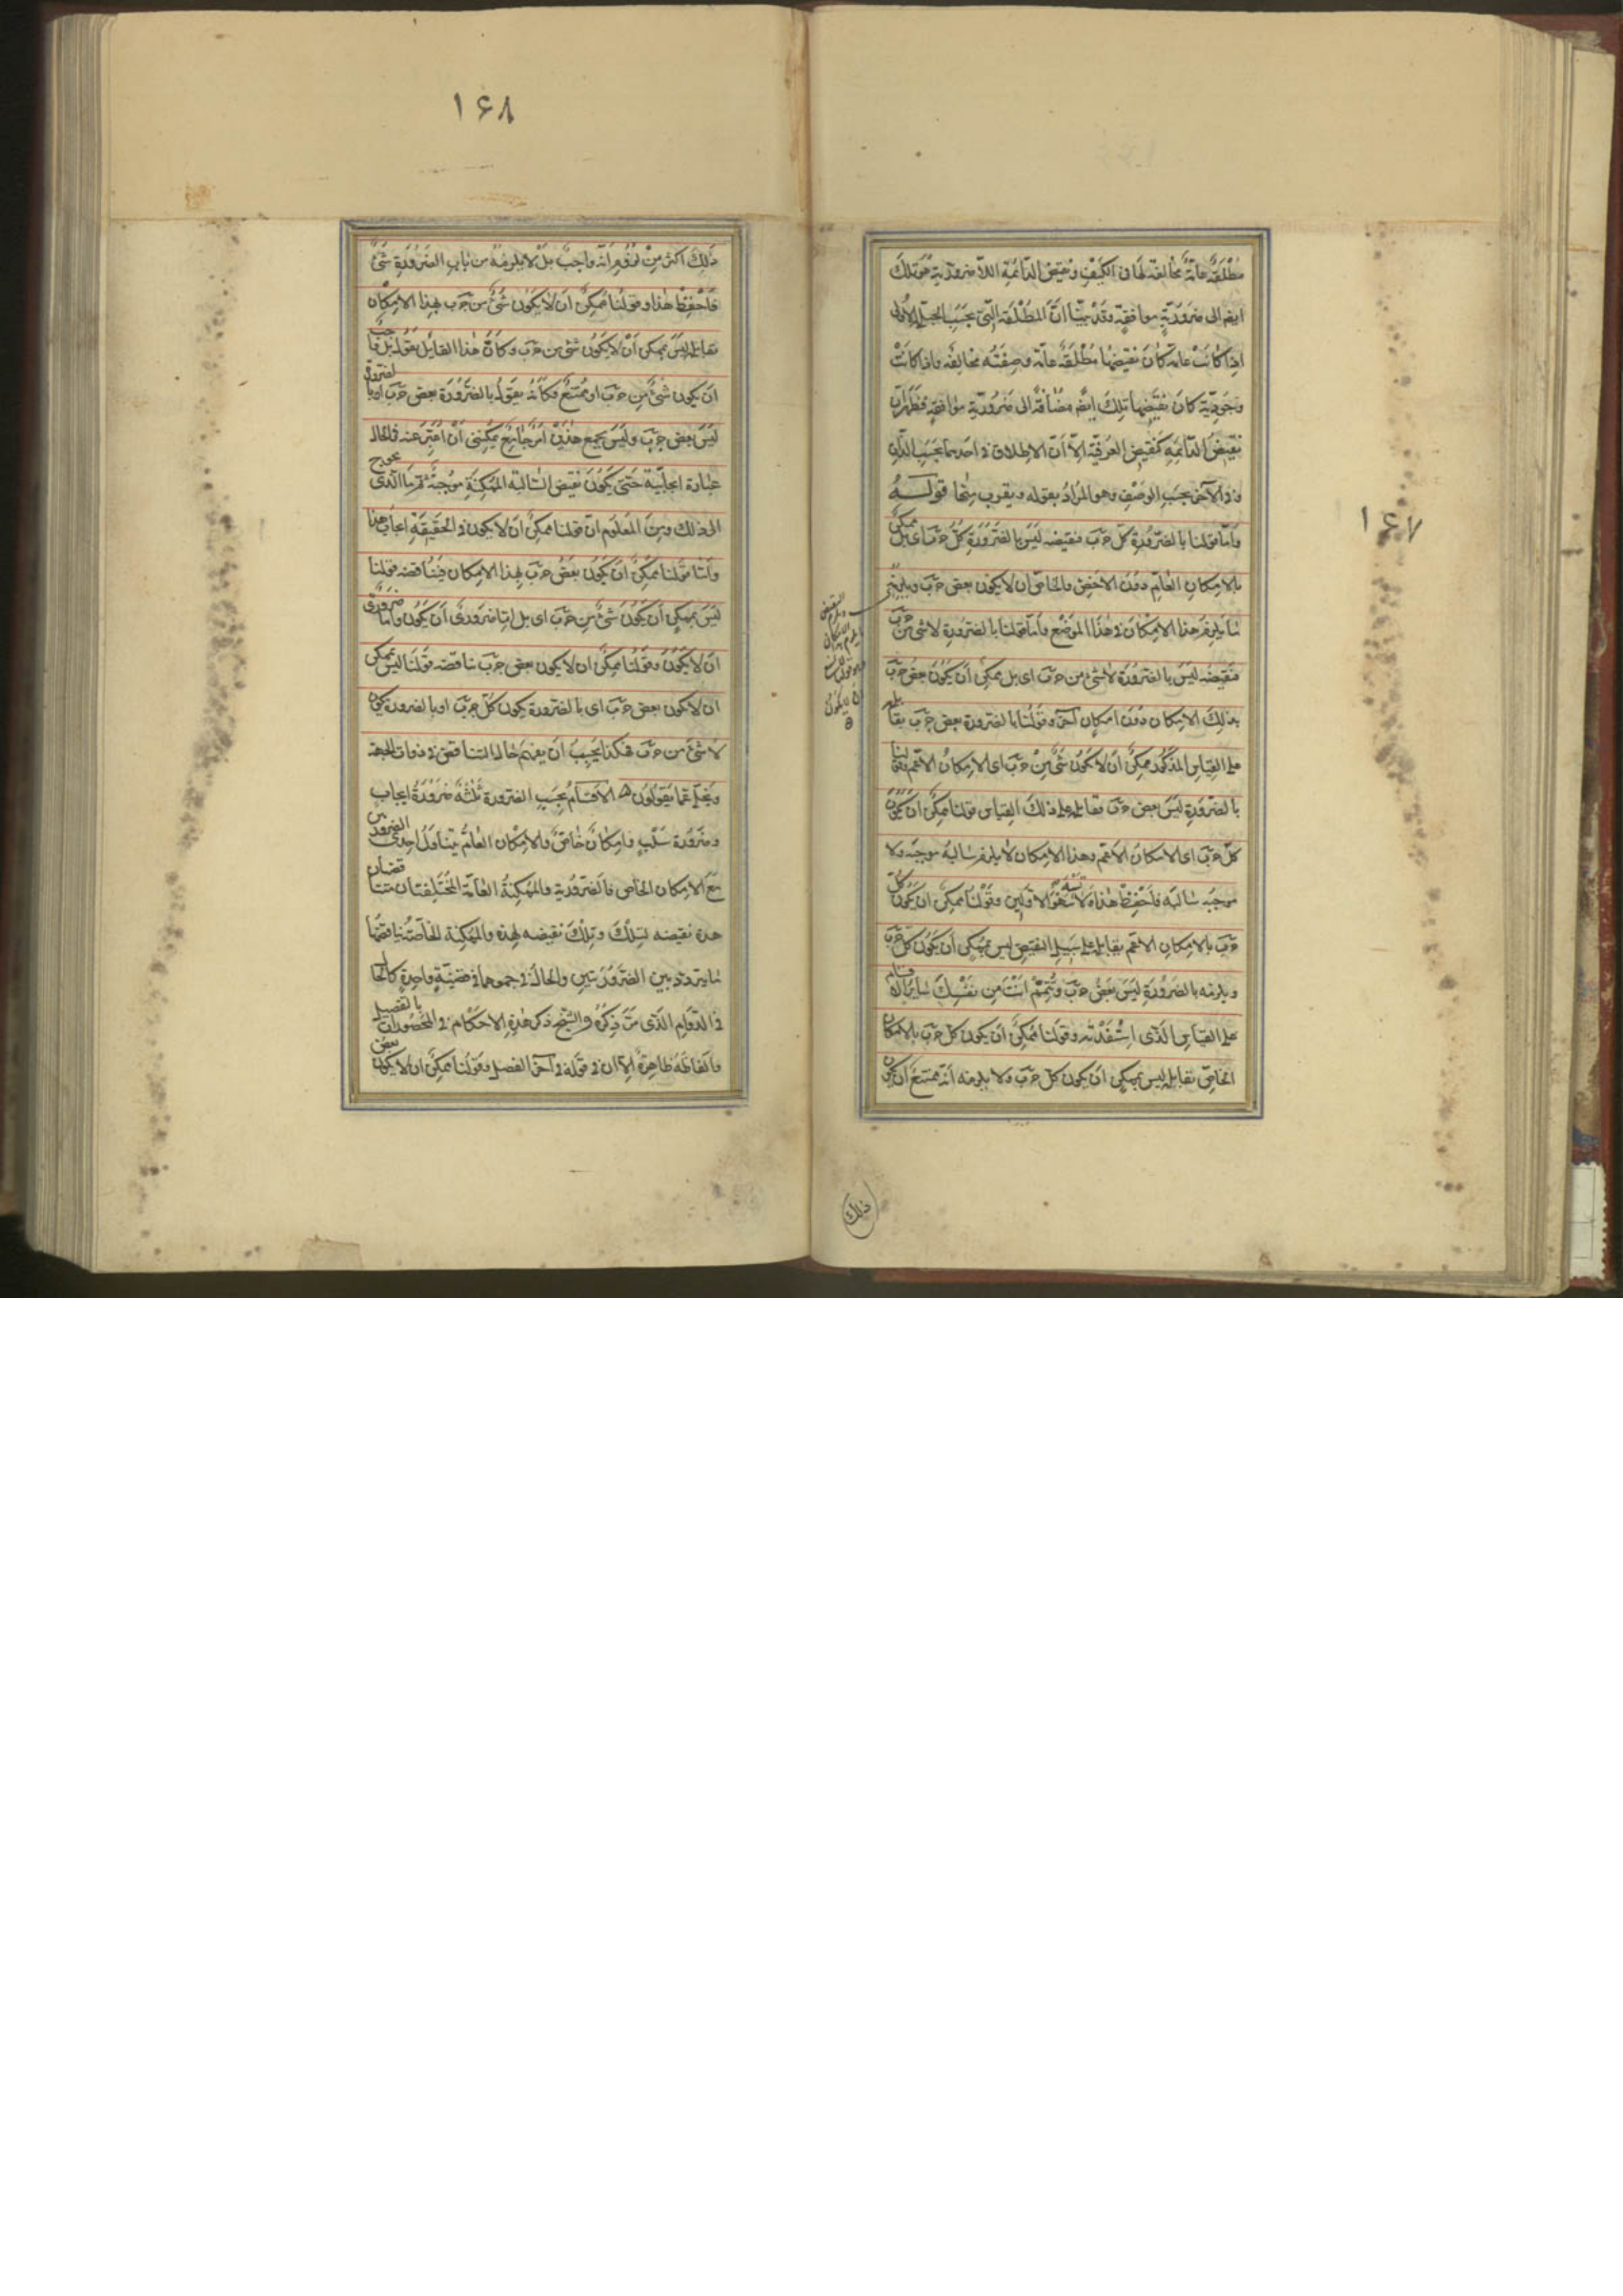 ۱۶۷
مُطْلَقَةٌ عامّةٌ مخالفة لها فى الكَيْفِ ونقيض الدّائمَةِ اللّاضروريّة هُوَ تلكَ
ايضا الى ضَرُوريّةٍ موافقةٍ وقَدْ بيّنّا انّ المُطْلَقَة الّتى بحَسَبِ الحيلةِ الأولى
اذا كانَتْ عامّة كانَ نقيضها مُطْلَقَةٌ عامّة وصِفَتُه مخالِفة واذا كانَتْ
وجوديّة كانَ نقيضها تلكَ ايضا مضافَةً الى ضَرُوريّةٍ موافقةٍ فظهرَ انّ
نقيضَ الدّائمةِ كنقيضِ العرفيّة الّا أنّ الاطلاق فى احَدِهما بحَسَبِ الذّاتِ
وفى الآخر بحَسَبِ الوَصْفِ وهو المُرادُ بقوله ويقرب منها قولــه
وامّا قولنا بالضّرورةِ كلّ جَ بَ فنقيضه ليسَ بالضّرورةِ كلّ جَ بَ اى بل ممكنٌ
بالامكانِ العامّ دونَ الاخصّ والخاصّ ان لا يكون بعض جَ بَ ويلزمُه
ما يلزم هذا الامكانَ فى هذا الموضع وامّا قولنا بالضّرورةِ لا شئ من جَ بَ
فنقيضُه ليسَ بالضّرورة لا شئ من جَ بَ اى بل ممكنٌ أن يكونَ بعض جَ بَ
بذلِكَ الامكان دونَ امكان آخر وقولُنا بالضّرورة بعض جَ بَ يقابله
على القياس المذكور ممكنٌ أن لا يكونَ شئٌ مِنْ جَ بَ اى الامكان الاعمّ وقولنا
بالضّرورةِ ليسَ بعض جَ بَ يقابله على ذلكَ القياس قولنا ممكنٌ أن يكونَ
كلّ جَ بَ اى الامكان الاعمّ وهذا الامكان لا يلزم سالبهُ موجبَه ولا
موجبُه سالبَه فاحْفَظْ هذا ولا تَسْهُ سَهْوَ الاوّلين وقَوْلُنا ممكنٌ ان يكونَ كلّ
جَ بَ بالامكانِ الاعمّ يقابله على سَبيلِ النقيضِ ليس بممكنٍ أن يكونَ كلّ جَ بَ
ويلزمه بالضَرورَةِ ليسَ بَعْضُ جَ بَ وتُتَمّمُ انْتَ مِن نفسِكَ سايرَ الاقسام
على القياسِ الّذى اِسْتَفَدْتَه وقولنا ممكنٌ أن يكون كلّ جَ بَ بالامكان
الخاصّ يقابله ليس بممكنٍ أن يكون كلّ جَ بَ ولا يلزمه انّه ممتنع أن يكون
ذلك
۱۶۸
ذلِكَ اكثر مِنْ لزومِ انّه واجبٌ بَلْ لا يلزمُهُ من بابِ الضَرُورَةِ شئٌ
فاحْفَظْ هذا وقولنا ممكنٌ أن لا يكونَ شئٌ من جَ بَ بهذا الامكان
يقابله ليسَ بممكنٍ أنْ لا يكونَ شئ من جَ بَ وكانّ هذا القايل يقول بَلْ واجبٌ
أنْ يكون شئٌ مِن جَ بَ او مُمْتنعٌ فكأنّه يقولُ بالضَرورَةِ بعض جَ بَ او بالضرورة
ليسَ بعض جَ بَ وليسَ يجمع هذَيْنِ امرٌ جامعٌ يمكننى أنْ أعَبّرَ عنه فى الحال
عبارة ايجابيّة حَتّى يكونَ نقيضُ السّالبة المُمكنَةِ مُوجبَةً ثم ما الّذى يحوج
الى ذلك ومِنَ المَعلوم انّ قولنا ممكنٌ أن لا يكون فى الحَقيقَةِ ايجابٌ هذا
وامّا قولنا ممكنٌ أن يكونَ بعضُ جَ بَ بهذا الامكان فيُناقضه قولنا
ليسَ بممكنٍ أن يكونَ شئ مِن جَ بَ اى بل امّا ضرورىٌّ أن يكونَ وامّا ضرورىٌّ
أن لا يكونَ وقولُنا ممكنٌ أن لا يكون بعض جَ بَ يناقضه قولُنا ليسَ بممكن
أن لا يكون بعض جَ بَ اى بالضّرورة يكون كلّ جَ بَ او بالضرورة يكون
لا شئَ من جَ بَ هكذا يجبُ أن يفهمَ حال التناقض فى ذوات الجهة
ويخلّى عمّا يقولون الاقسامُ بحَسَبِ الضّرورة ثلثةٌ ضَرُورَةُ ايجابٍ
وضَرُورَة سَلْبٍ وامكانٌ خاصٌّ والامكان العامُّ يَتَناوَلُ احدى الضرورتين
مَعَ الامكان الخاصّ فالضّروريّة والممكنَةُ العامّة المُخْتَلِفتان تتناقضان
هذه نقيضه لتِلْكَ وتِلْكَ نقيضه لهذه والممكنة الخاصّة يُناقضها
ما يتردّد بين الضَرُورَتينِ والحالُ فى جمعهما فى قضيّةٍ واحِدةٍ كالحال
فى الدّوامِ الّذى مَرَّ ذِكرُه والشيخ ذكر هذِهِ الاحكام فى المحصُوراتِ بالتفصيل
والفاظه ظاهِرةٌ الّا ان فى قوله فى آخر الفصل وقَوْلُنا ممكنٌ ان لا يكون بعضُ